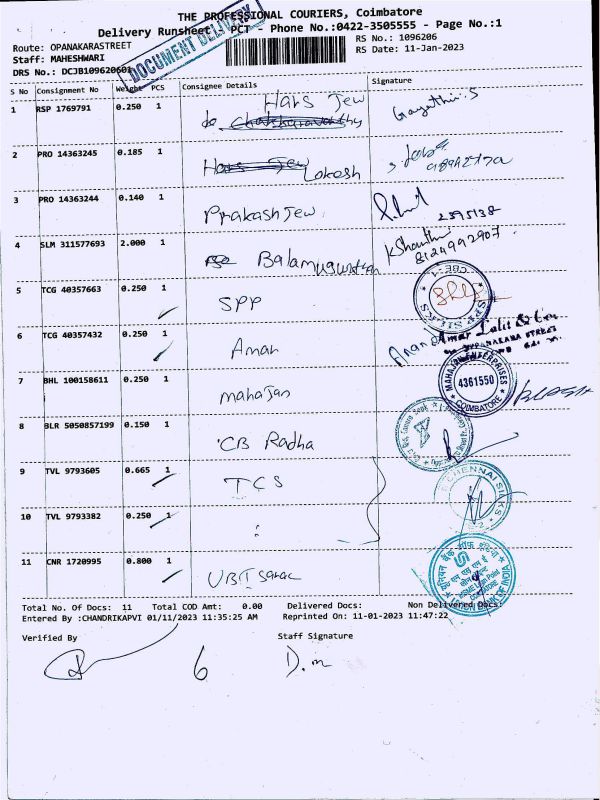 THE PROFESSIONAL COURIERS, Coimbatore
Delivery Runsheet - PCT - Phone No.:0422-3505555 - Page No.:1
DOCUMENT DELIVERY
Route: OPANAKARASTREET
RS No.: 1096206
Staff: MAHESHWARI
RS Date: 11-Jan-2023
DRS No.: DCJB109620601
S No Consignment No Weight PCS Consignee Details Signature
1 RSP 1769791 0.250 1 Hars Jew Gayathri.S
2 PRO 14363245 0.185 1 Lokesh
3 PRO 14363244 0.140 1 Prakash Jew. 2395138
4 SLM 311577693 2.000 1 Balamurugan K Shanthi 8124992907
5 TCG 40357663 0.250 1 SPP
6 TCG 40357432 0.250 1 Aman Anand Amar Lalit & Co
7 BHL 100158611 0.250 1 mahajan MAHAJAN ENTERPRISES 4361550 COIMBATORE
8 BLR 5050857199 0.150 1 CB Radha
9 TVL 9793605 0.665 1 TCS
CHENNAI SILKS
10 TVL 9793382 0.250 1 :
11 CNR 1720995 0.800 1 UBI
यूनियन बैंक ऑफ इंडिया
UNION BANK OF INDIA
Total No. Of Docs: 11 Total COD Amt: 0.00 Delivered Docs: Non Delivered Docs:
Entered By :CHANDRIKAPVI 01/11/2023 11:35:25 AM Reprinted On: 11-01-2023 11:47:22
Verified By Staff Signature
6 D.m